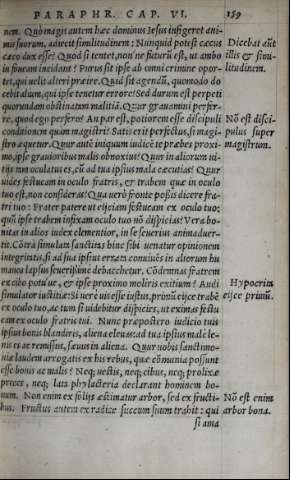 PARAPHR. CAP. VI. 159
nem. Quo magis autem hæc dominus Iesus infigeret ani-
mis suorum, adiecit similitudinem: Nunquid potest cæcus
cæco dux esse? Quod si tentet, nonne futurū est, ut ambo
in foueam incidant? Purus sit ipse ab omni crimine opor-
tet, qui uelit alteri præire. Quid sit agendū, quomodo do
cebit alium, qui ipse tenetur errore? Sed durum est perpeti
quorundam obstinatam malitiā. Quur grauamini perfer-
re, quod ego perfero? An par est, potiorem esse discipuli
conditionem quàm magistri? Satis erit perfectus, si magi-
stro æquetur. Quur aute iniquum iudicē te præbes proxi-
mo, ipse grauioribus malis obnoxius? Quur in aliorum ui-
tijs tam oculatus es, cū ad tua ipsius mala cæcutias? Quur
uides festucam in oculo fratris, & trabem quæ in oculo
tuo est, non consideras? Qua uerò fronte poßis dicere fra-
tri tuo: Frater patere ut eijciam festucam ex oculo tuo:
quū ipse trabem infixam oculo tuo nō dispicias? Vera bo-
nitas in alios iudex clementior, in se seuerius animaduer-
tit. Cōtrà simulata sanctitas hinc sibi uenatur opinionem
integritatis, si ad sua ipsius errata conniuēs in aliorum hu
manos lapsus seueriβime debacchetur. Cōdemnas fratrem
ex cibo potuue, & ipse proximo moliris exitium? Audi
simulator iustitiæ: Si uere uis esse iustus, primū eijce trabē
ex oculo tuo, ac tum si uidebitur, dispicies, ut eximas festu
cam ex oculo fratris tui. Nunc præpostero iudicio tuis
ipsius bonis blandiris, aliena eleuas: ad tua ipsius mala le-
nis es ac remissus, sæuus in aliena. Quur uobis sanctimo-
niæ laudem arrogatis ex his rebus, quæ cōmunia possunt
esse bonis ac malis? Neq; uestis, neq; cibus, neq; prolixæ
preces, neq; lata phylacteria declarant hominem bo-
num. Non enim ex folijs æstimatur arbor, sed ex fructi-
bus. Fructus autem ex radice succum suum trahit: qui
si ama
Dicebat aūt
illis & simi-
litudinem.
Nō est disci-
pulus super
magistrum.
Hypocrita
eijce primū.
Nō est enim
arbor bona.